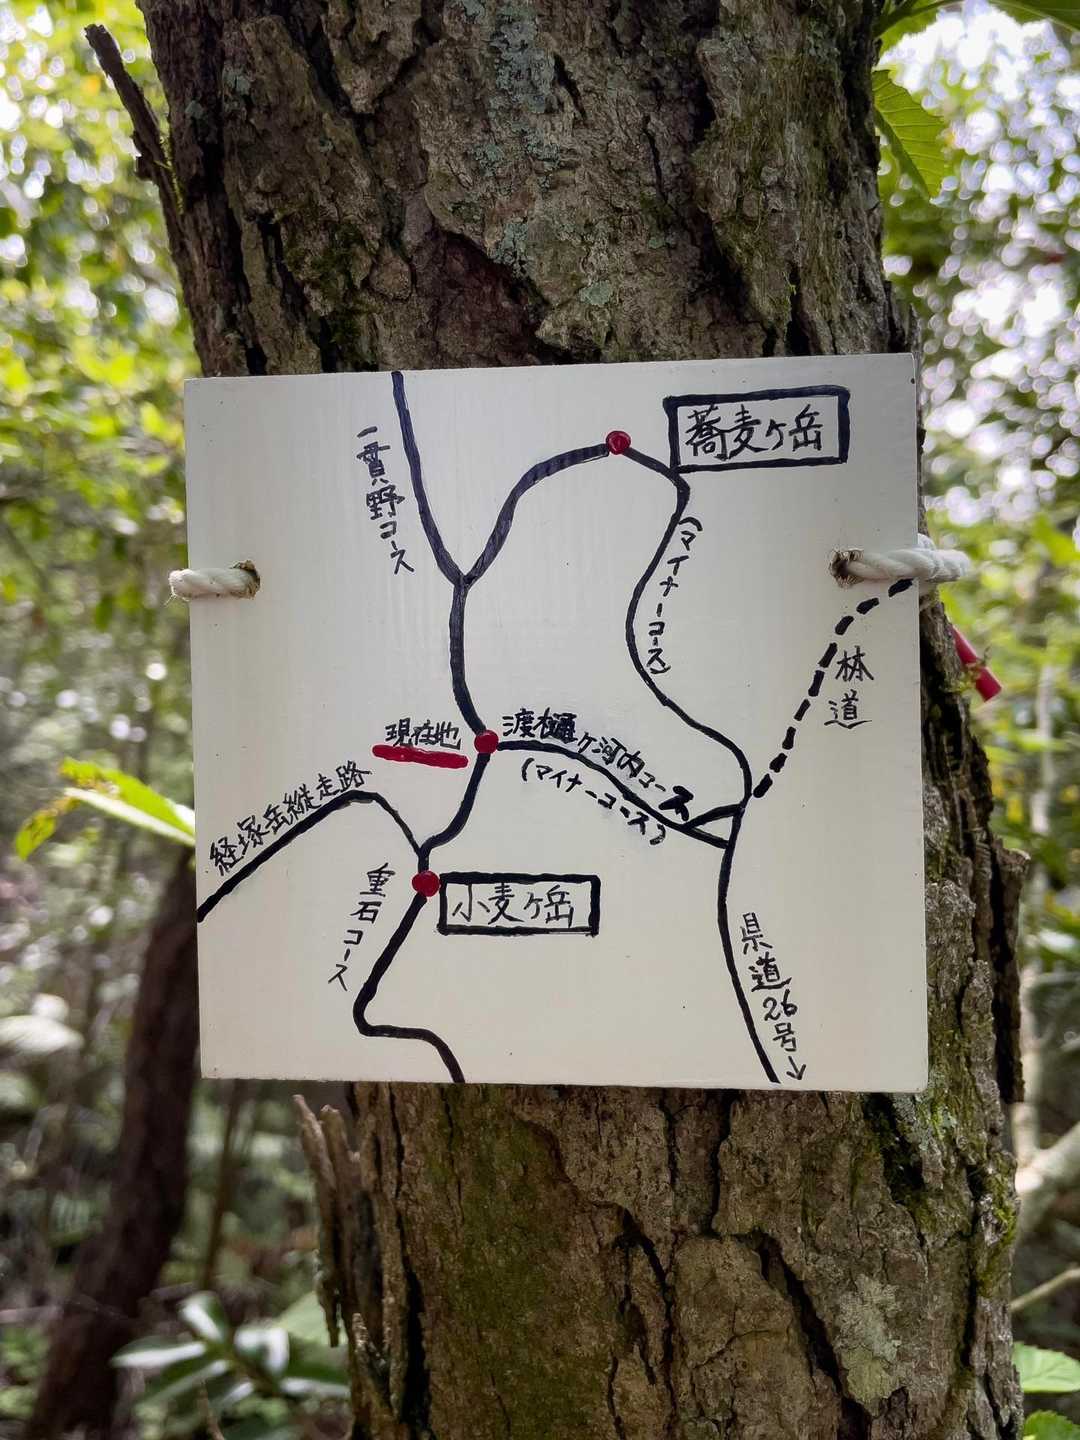 蕎麦ヶ岳
一貫野コース
(マイナーコース)
林道
現在地
渡樋ヶ河内コース
(マイナーコース)
経塚岳縦走路
重石コース
小麦ヶ岳
県道26号↓